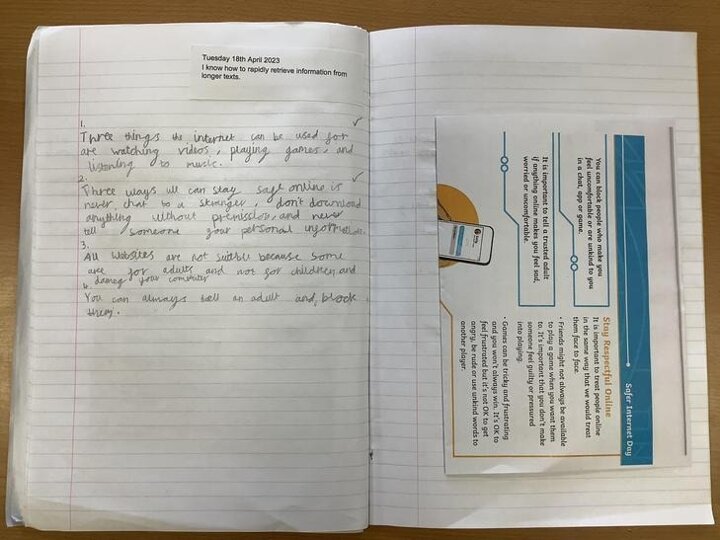 Tuesday 18th April 2023
I know how to rapidly retrieve information from
longer texts.
1.
Three things the internet can be used for
are watching videos, playing games, and
listening to music.
2.
Three ways we can stay safe online is
never chat to a stranger, don't download
anything without and never
tell someone your personal
3.
All websites are not because some
are for adults and not for children, and
4. your computer
You can always tell an adult and block
them.
Safer Internet Day
You can block people who make you
feel uncomfortable or are unkind to you
in a chat, app or game.
It is important to tell a trusted adult
if anything online makes you feel sad,
worried or uncomfortable.
Stay Respectful Online
It is important to treat people online
in the same way that we would treat
them face to face.
• Friends might not always be available
to play a game when you want them
to. It's important that you don't make
someone feel guilty or pressured
into playing.
• Games can be tricky and frustrating
and you won't always win. It's OK to
feel frustrated but it's not OK to get
angry, be rude or use unkind words to
another player.